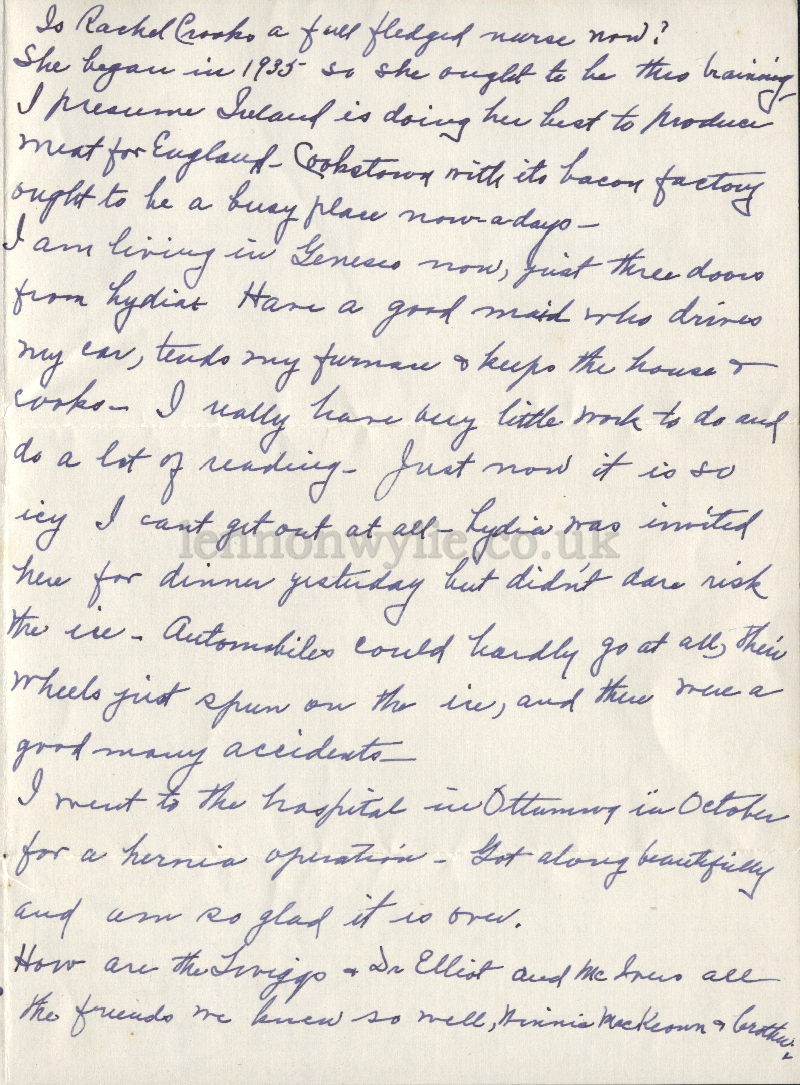 Is Rachel Crooks a full fledged nurse now?
She began in 1935 so she ought to be thro training—
I presume Ireland is doing her best to produce
meat for England— Cookstown with its bacon factory
ought to be a busy place now-a-days—
I am living in Geneseo now, just three doors
from Lydia. Have a good maid who drives
my car, tends my furnace & keeps the house &
cooks— I really have very little work to do and
do a lot of reading— Just now it is so
icy I can't get out at all— Lydia was invited
lennonwylie.co.uk
here for dinner yesterday but didn't dare risk
the ice— Automobiles could hardly go at all, their
wheels just spun on the ice, and there were a
good many accidents—
I went to the hospital in Ottumwa in October
for a hernia operation— Got along beautifully
and am so glad it is over.
How are the Twiggs & Dr Elliot and all
the friends we knew so well, Winnie MacKeown & brother.